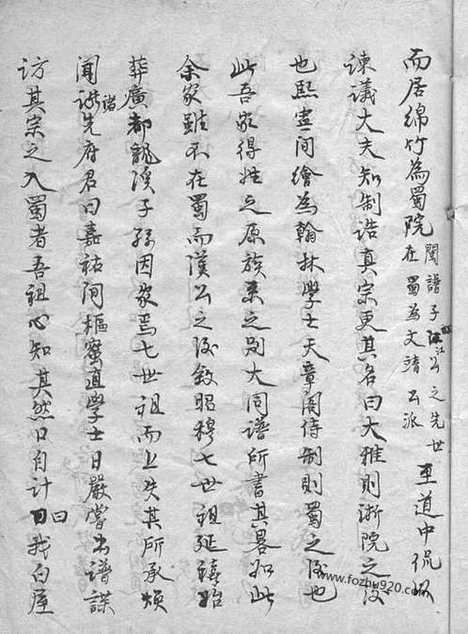 而居綿竹為蜀院閩譜子江公之先世在蜀為文靖公派至道中侃
諫議大夫知制誥真宗更其名曰大雅則浙院之後
也熙寧間繪為翰林學士天章閣侍制則蜀之後也
此吾家得姓之原族系之別大同譜所書其畧如此
余家雖不在蜀而漢公之後敘昭穆七世祖延禧始
葬廣都龍溪子孫因家焉七世祖而上失其所承煩
聞諸先府君曰嘉祐間樞蜜直學士日嚴嘗出譜諜
訪其宗之入蜀者吾祖心知其然口自計曰我白屋
www.fozhu920.com